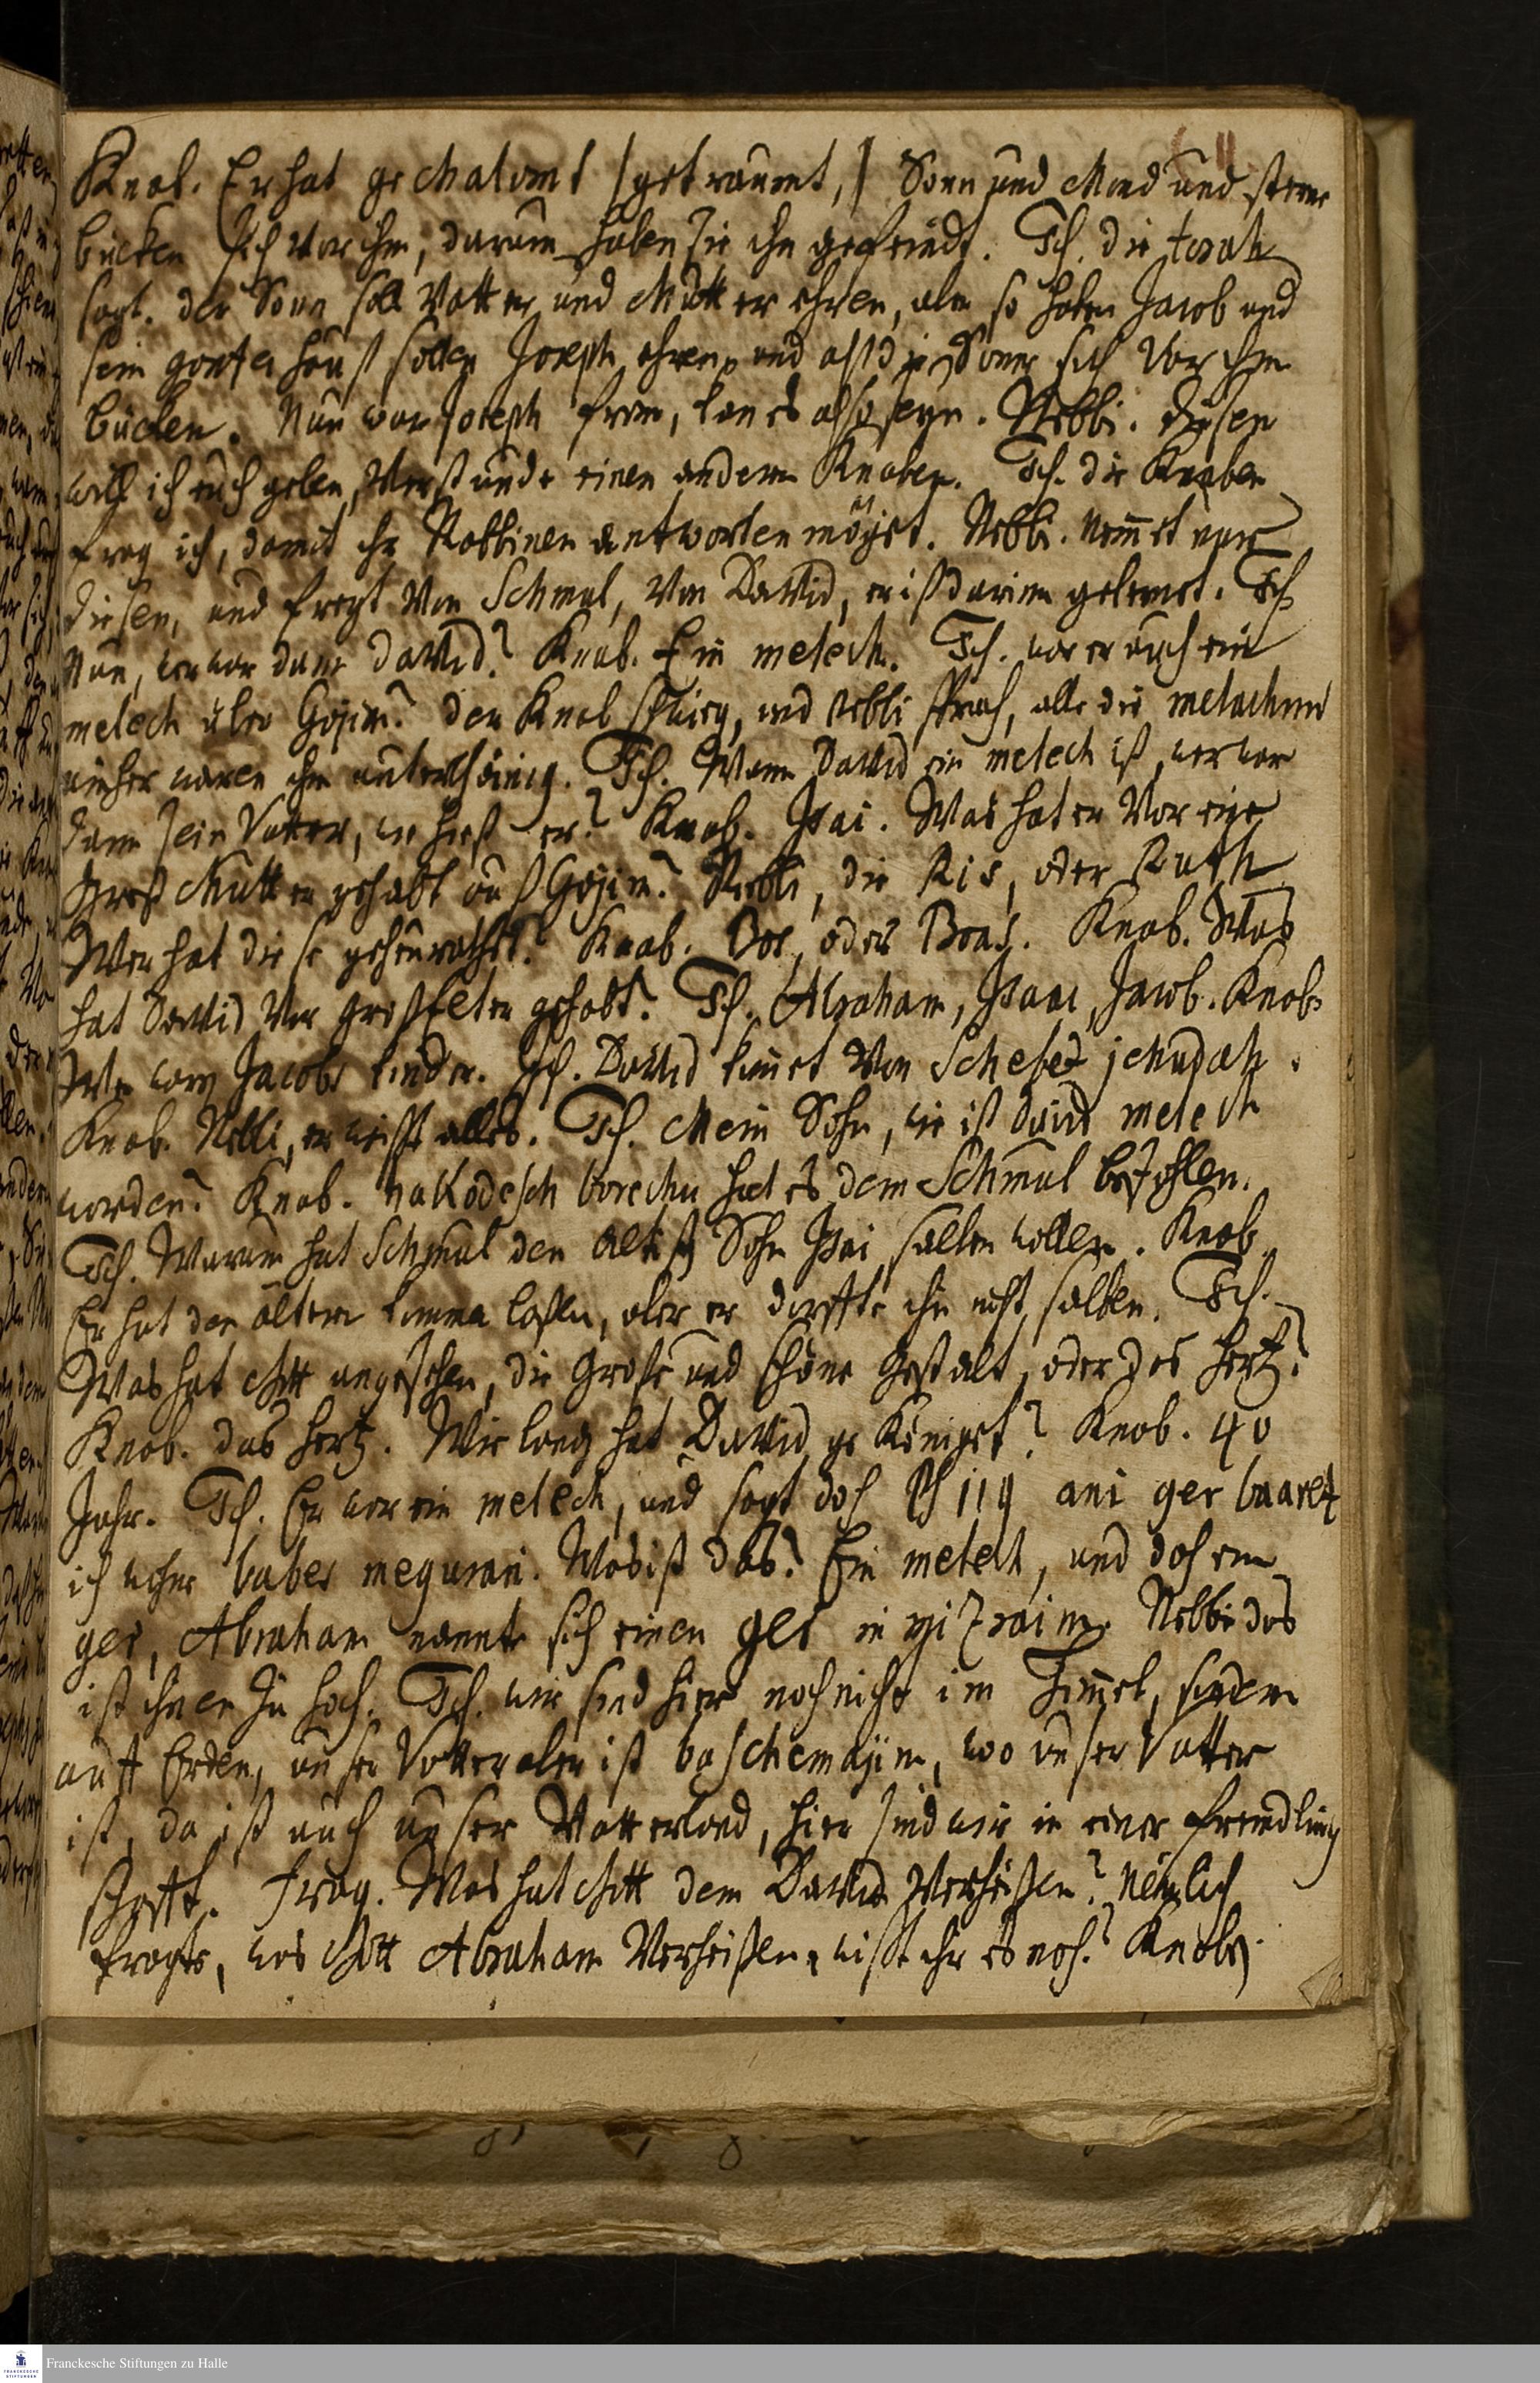 11
Knab. Er hat gechalomt /geträumt,/ Sonn und Mond und sterne
bücken sich vor ihm, darum haben sie ihn gefeindt. Ich. die torah
sagt. der Sonn soll Vatter und Mutter ehren, aber so haben Jacob und
sein gantzes Hauß sollen Joseph ehren, und alß die Sonne sich vor ihm
bücken. Nun war Joseph from, kan es also seyn. Rebbi. diesen
will ich euch geben, Verstunde einen andern Knaben. Ich. die Knaben
frag ich, damit ihr Rabbinen antworten möget. Rebbi. Nemmet nur
diesen, und fragt Von Schmul, Von David, er ist darinn gelernet. Ich
Nun, wer war dann David? Knab. Ein melech. Ich. war er auch ein
melech über Gojim? der Knab schwieg, und Rebbi sprach, alle die melachim
umher waren ihm unterthänig. Ich. Wann David ein melech ist, wer war
dann sein Vatter, wie hieß er? Knab. Isai. Was hat er Vor eine
Groß Mutter gehabt auß Gojim? Rebbi, die Ris, oder Ruth
Wer hat diese geheurathet? Knab. Bos, oder Boas. Knab. Was
hat David Vor Großelter gehabt? Ich. Abraham, Isaac, Jacob. Knab.
Wie warn Jacobs kinder. Ich. David kommet Von Schebet jehudah.
Knab. Rebbi, er weißt alles. Ich. Mein Sohn, wie ist David melech
worden? Knab. hakodesch borechu hat es dem Schmul befohlen.
Ich. Warum hat Schmul den ältest Sohn Isai salben wollen. Knab.
Er hat den ältern kommen laßen, aber er dorffte ihn nicht salben. Ich.
Was hat Gott angesehen, die Große und schöne Gestalt, oder das Hertz?
Knab. das Hertz. Wie lang hat David geköniget? Knab. 40
Jahr. Ich. Er war ein melech, und sagt doch Ps 119 ani ger baaretz
ich wohne babes megurai. Was ist das? Ein melech, und doch ein
ger, Abraham nannte sich einen ger in mizraim. Rebbi das
ist ihnen zu hoch. Ich. wir sind hier noch nicht im Himmel, sondern
auff Erden, unser Vatter aber ist baschemajim, wo unser Vatter
ist, da ist auch unser Vatterland, hier sind wir in einer Frembdling
schafft. Frag. Was hat Gott dem David Verheißen? Nemlich
fragte, was Gott Abraham Verheißen, wißt ihr es noch? Knab.
Franckesche Stiftungen zu Halle